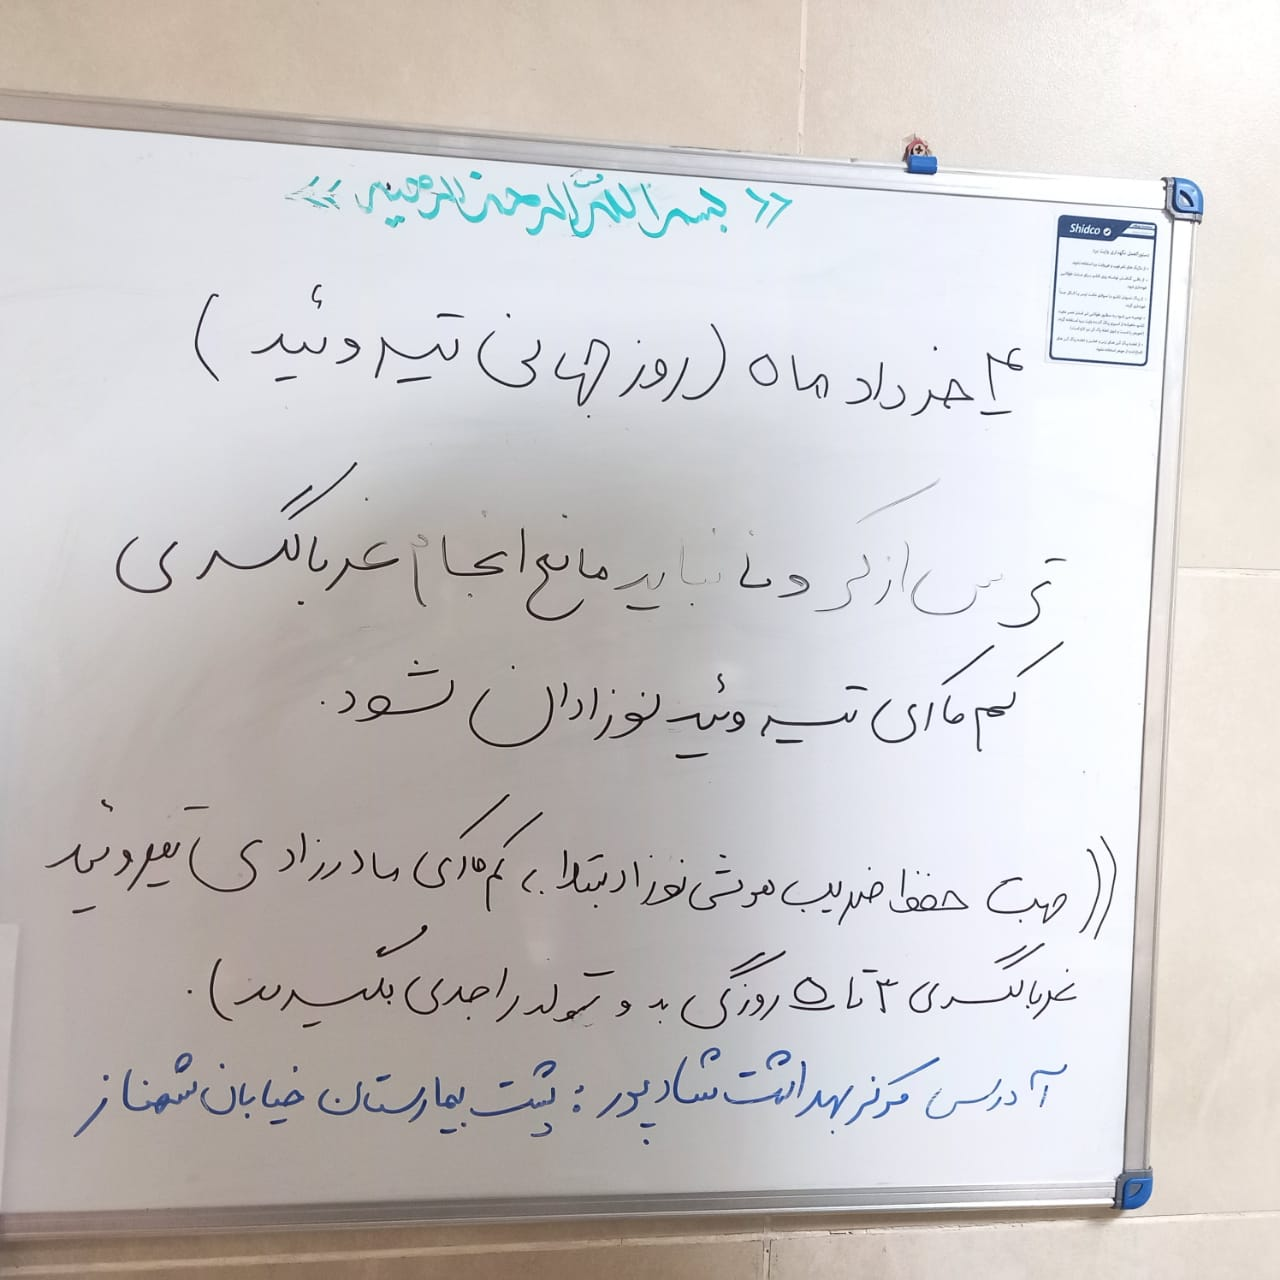 « بسم الله الرحمن الرحیم »
۴ خرداد ماه (روز جهانی تیروئید)
ترس از کرونا نباید مانع انجام غربالگری
کم کاری تیروئید نوزادان شود.
((جهت حفظ ضریب هوشی نوزاد مبتلا به کم کاری مادرزادی تیروئید
غربالگری ۳ تا ۵ روزگی بدو تولد را جدی بگیرید).
آدرس مرکز بهداشت شادپور : پشت بیمارستان خیابان شهناز
Shidco
دستورالعمل نگهداری وایت برد